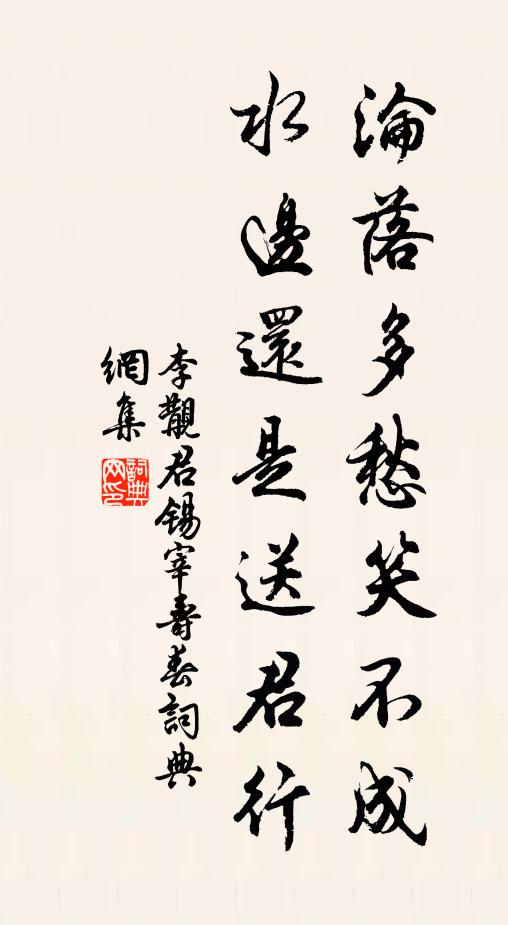 淪落多愁笑不成
水邊還是送君行
李覯君錫宰壽春詞典
網集
詞典
网印